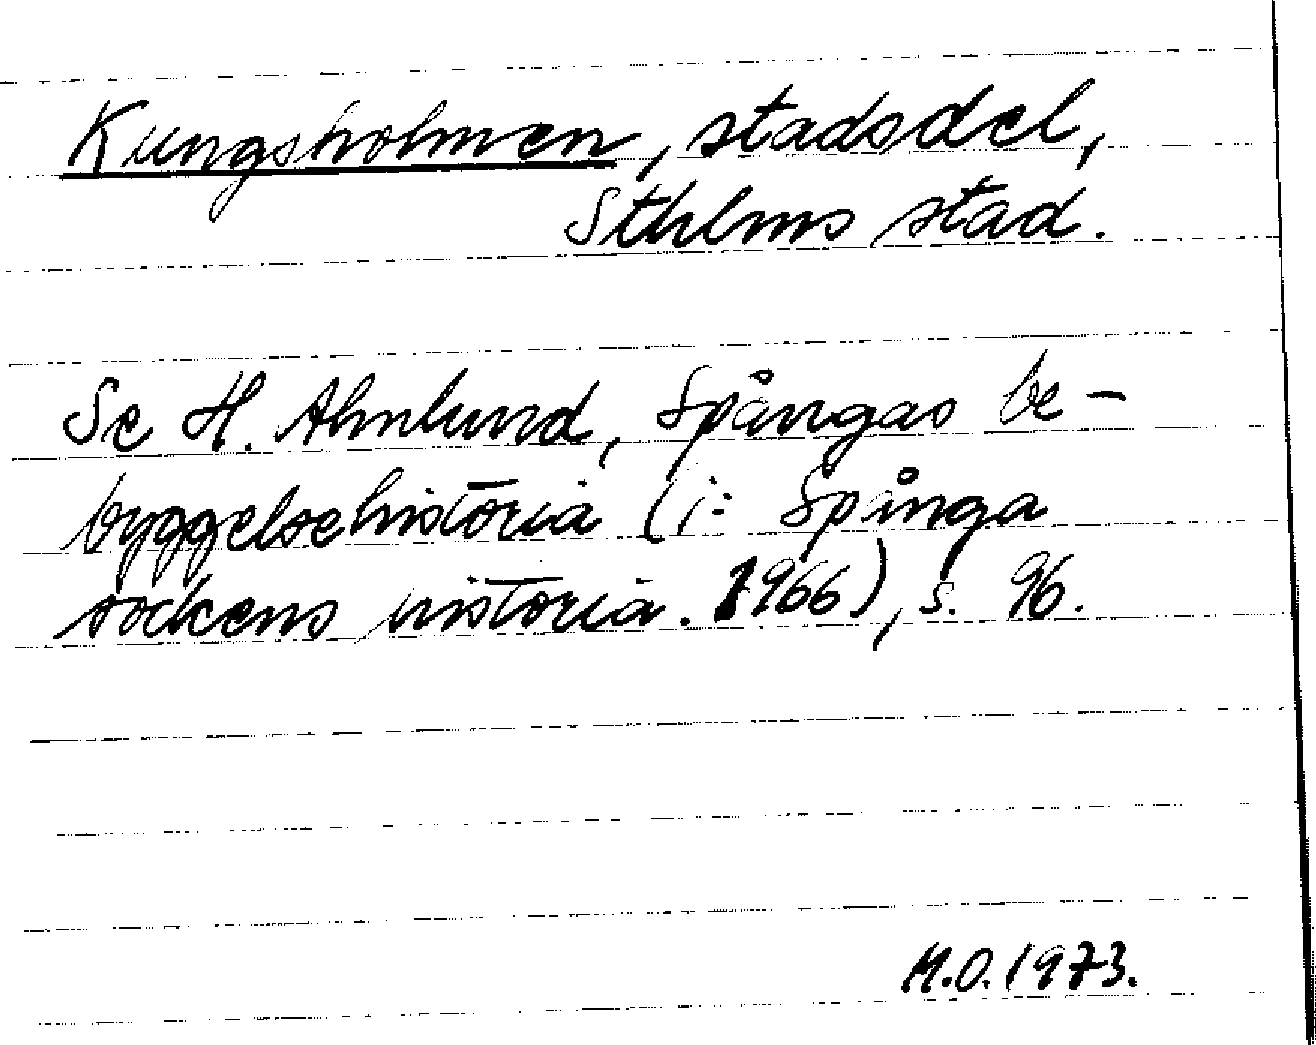 Kungsholmen, stadsdel,
Sthlms stad.
Se H. Ahnlund, Spångas be-
byggelsehistoria (i: Spånga
sockens historia. 1966), s. 96.
M.O. 1973.